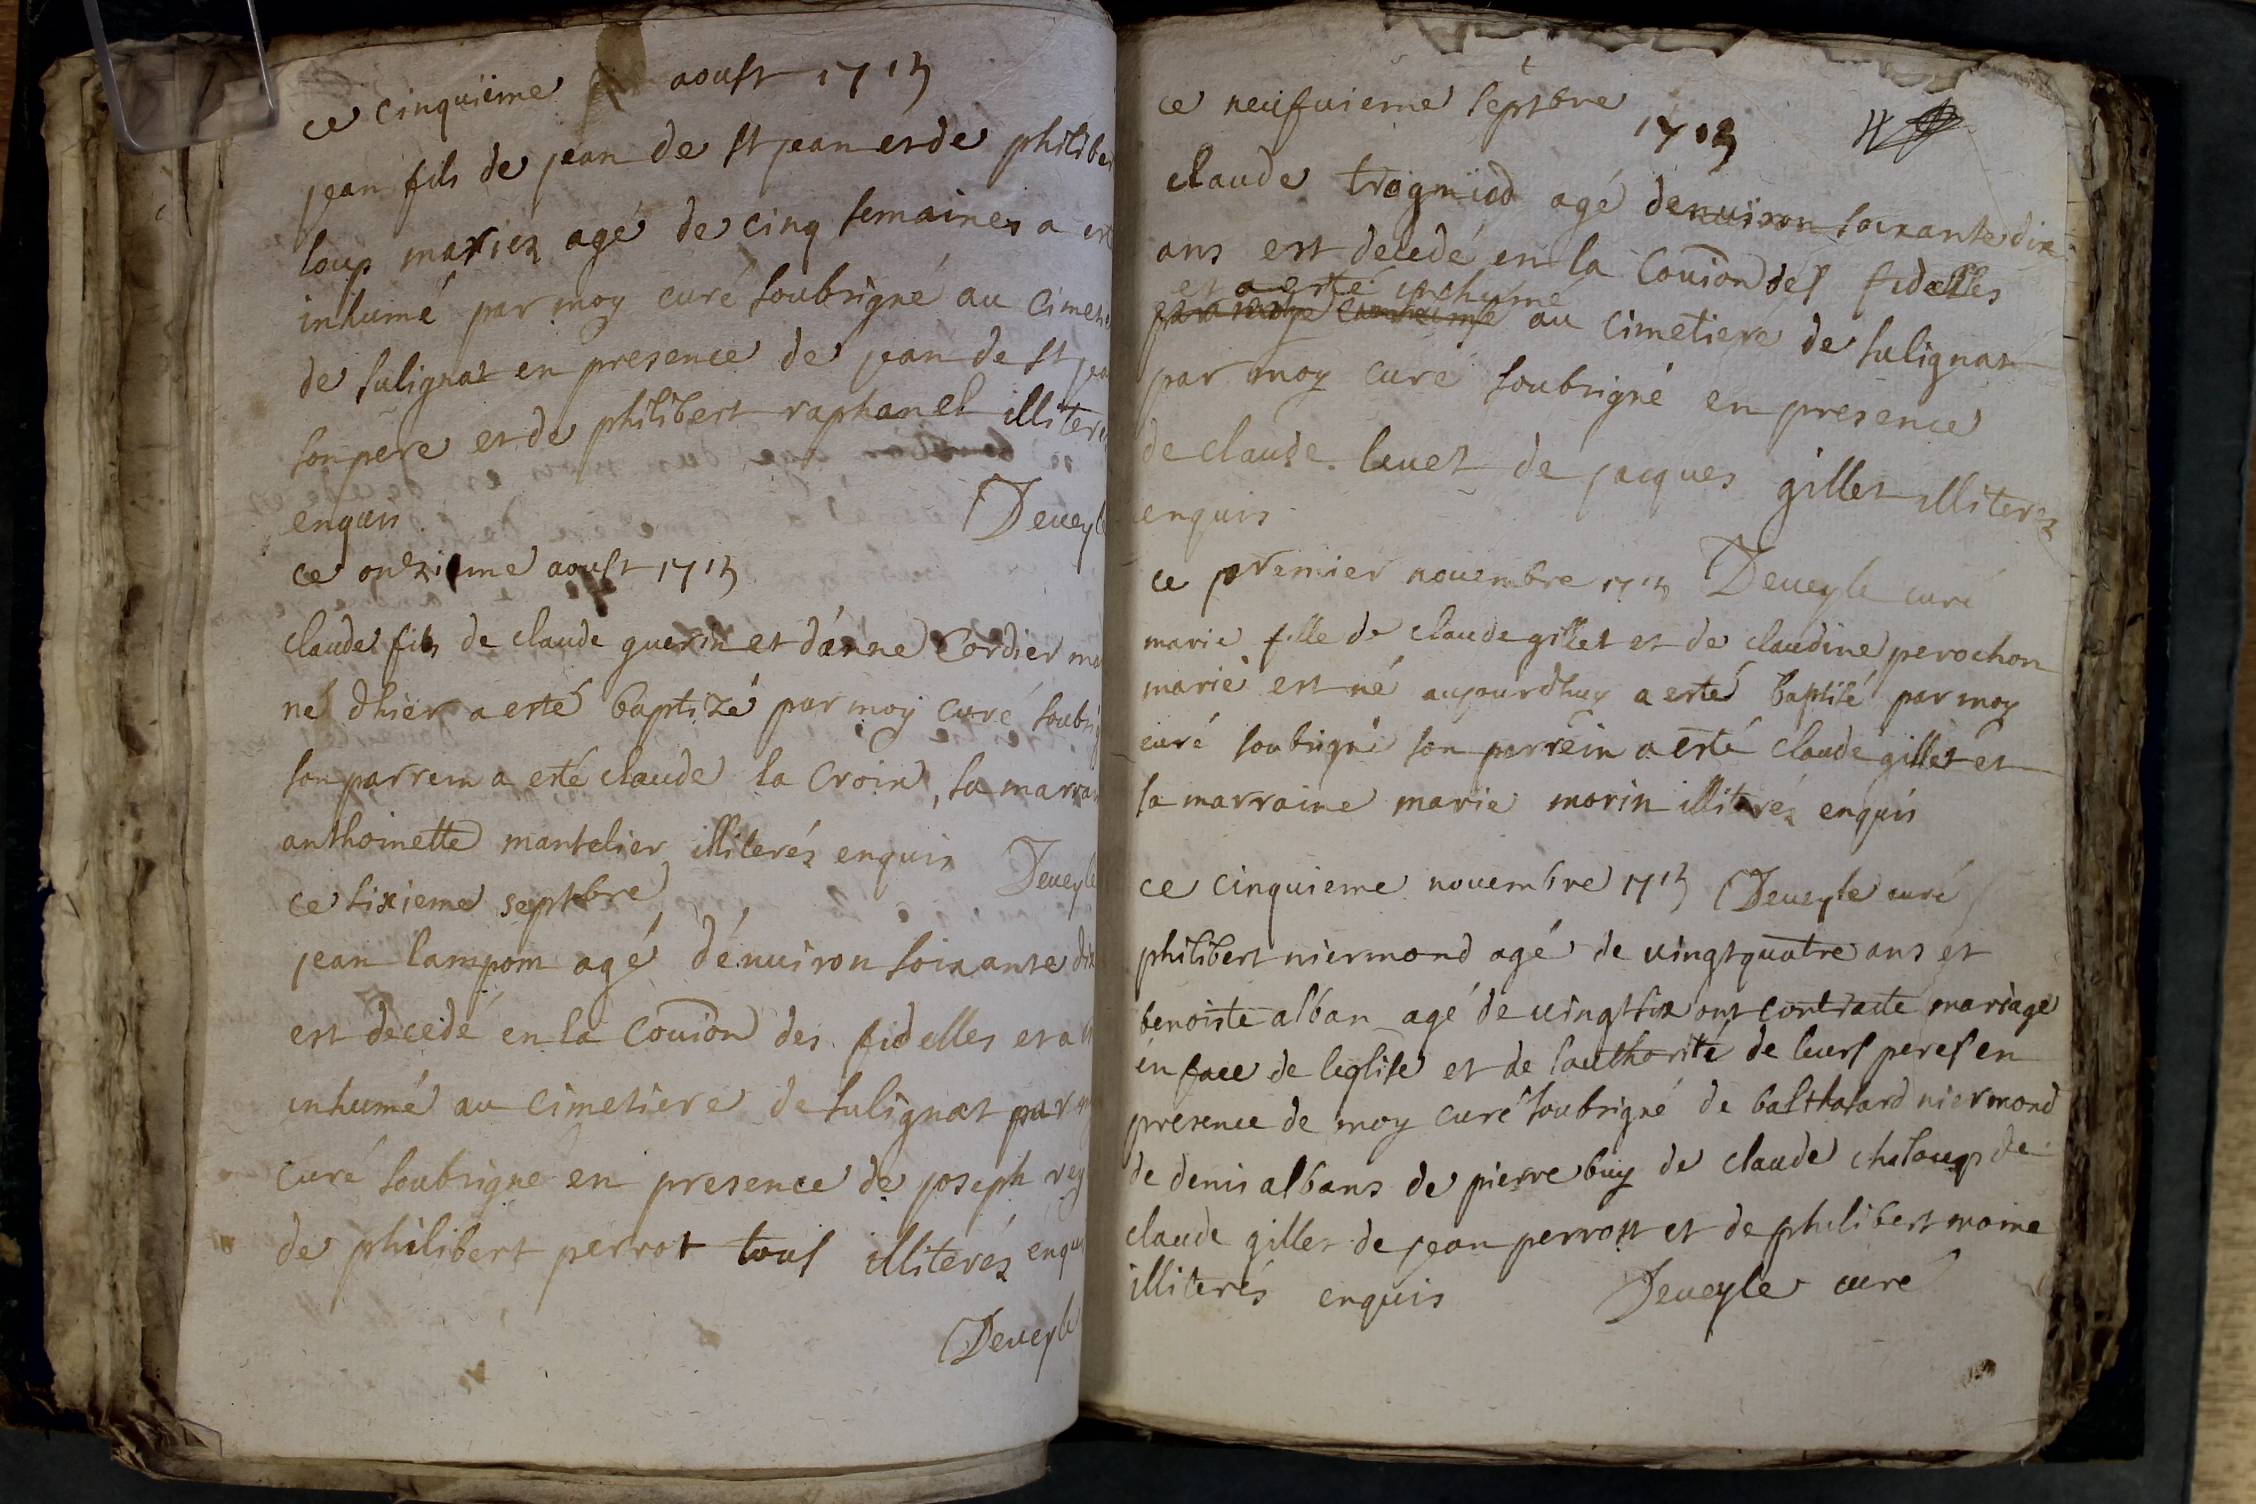 ce cinquieme aoust 1713
jean fils de jean de st jean et de philibe
loup mariez agé de cinq semaines a est
inhumé par moy curé soubsigné au cimetie
de sulignat en presence de jean de st jea
son pere et de philibert raphanel illiteré
enquis Deveyle
ce onzieme aoust 1713
claude fils de claude guerin et d'anne Cordier ma
né dhier a esté baptizé par moy curé soubsig
son parrein a esté claude la Croix, sa marrai
anthoinette mantelier illiterés enquis Deveyle
ce sixieme septbre
jean lampom agé d'environ soixante dix
est decedé en la Couion des fidelles et a
inhumé au cimetiere de sulignat par m
curé soubsigne en presence de joseph rey
de philibert perrot tous illiterés enqu
Deveyle
ce neufvieme septbre
1713
claude trogniod agé denviron soixante dix
ans est decedé en la Couion des fidelles
et a esté inhumé
au cimetiere de sulignat
par moy curé soubsigné en presence
de claude levet de jacques gillet illiterez
enquis
ce premier novembre 1713 Deveyle curé
marie fille de claude gillet et de claudine perochon
mariè est né aujourdhuy a esté baptisé par moy
curé soubsigné son parrein a esté claude gillet et
sa marraine marie morin illiteréz enquis
ce cinquieme novembre 1713 Deveyle curé
philibert niermond agé de vingt quatre ans et
benoiste alban agé de vingt six ont contracte mariage
en face de leglise et de lauthorité de leurs peres en
presence de moy curé soubsigné de balthasard niermond
de denis albans de pierre buy de claude chaloup de
claude gillet de jean perrost et de philibert moine
illiterés enquis Deveyle curé